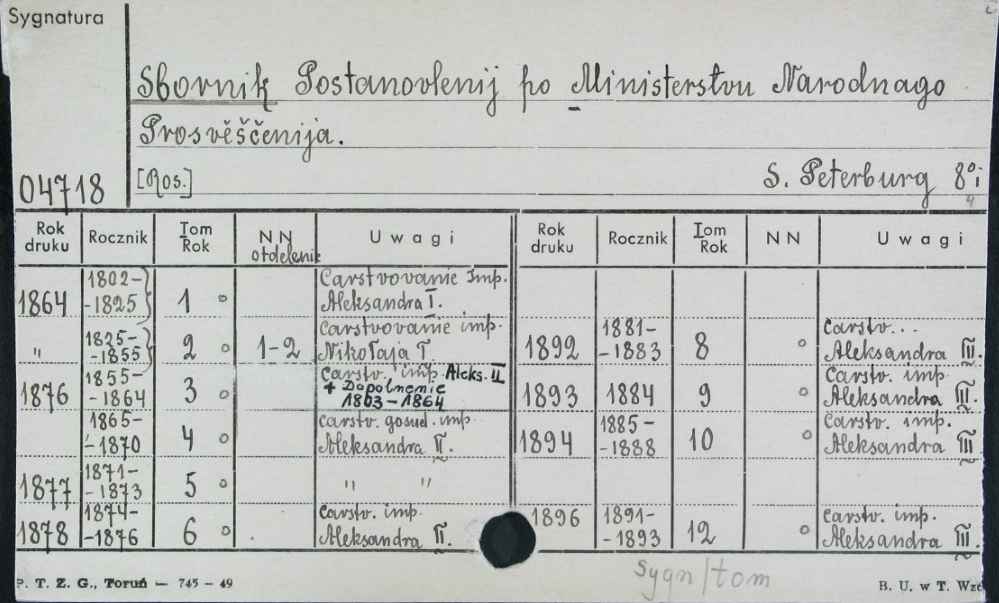 Sygnatura
Sbornik Postanovlenij po Ministerstvu Narodnago
Prosvěščenija.
04718 [Ros.] S. Peterburg 8° i
4
Rok druku Rocznik Tom Rok NN otdelenie Uwagi
1864 1802–-1825 1 ° Carstvovanie Imp. Aleksandra I.
" 1825–-1855 2 ° 1-2 Carstvovanie imp. Nikołaja I.
1876 1855–-1864 3 ° Carstv. imp. Aleks. II + Dopolnenie 1803–1864
1865–-1870 4 ° Carstv. gosud. imp. Aleksandra II.
1877 1871–-1873 5 ° " "
1878 1874–-1876 6 ° Carstv. imp. Aleksandra II.
Rok druku Rocznik Tom Rok NN Uwagi
1892 1881–-1883 8 ° Carstv... Aleksandra III.
1893 1884 9 ° Carstv. imp. Aleksandra III.
1894 1885–-1888 10 ° Carstv. imp. Aleksandra III
1896 1891–-1893 12 ° Carstv. imp. Aleksandra III.
sygn/tom
P. T. Z. G., Toruń — 745 – 49
B. U. w T. Wzór